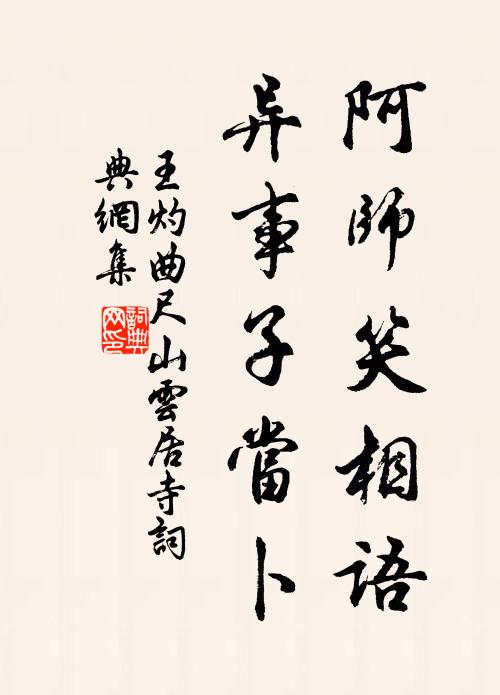 阿師笑相語
异事子當卜
王灼曲尺山雲居寺詞
典網集
詞典
网印